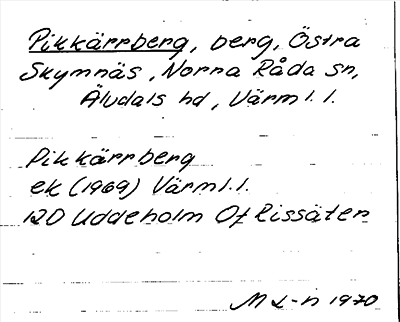 Pikkärrberg, berg, Östra
Skymnäs, Norra Råda sn,
Älvdals hd, Värml. l.
Pikkärrberg
ek (1969) Värml. l.
12D Uddeholm Of Rissäter
M L-n 1970